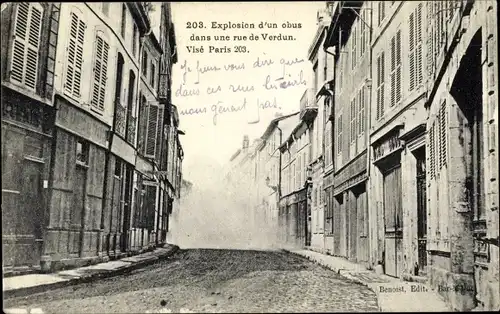 203. Explosion d'un obus
dans une rue de Verdun.
Visé Paris 203.
Je peux vous dire que
dans ces rues les
nous gênent pas
Benoist, Edit. - Bar-le-Duc